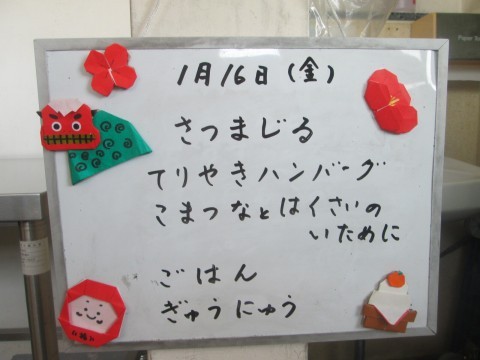 1月16日(金)
さつまじる
てりやきハンバーグ
こまつなとはくさいの
いために
ごはん
ぎゅうにゅう